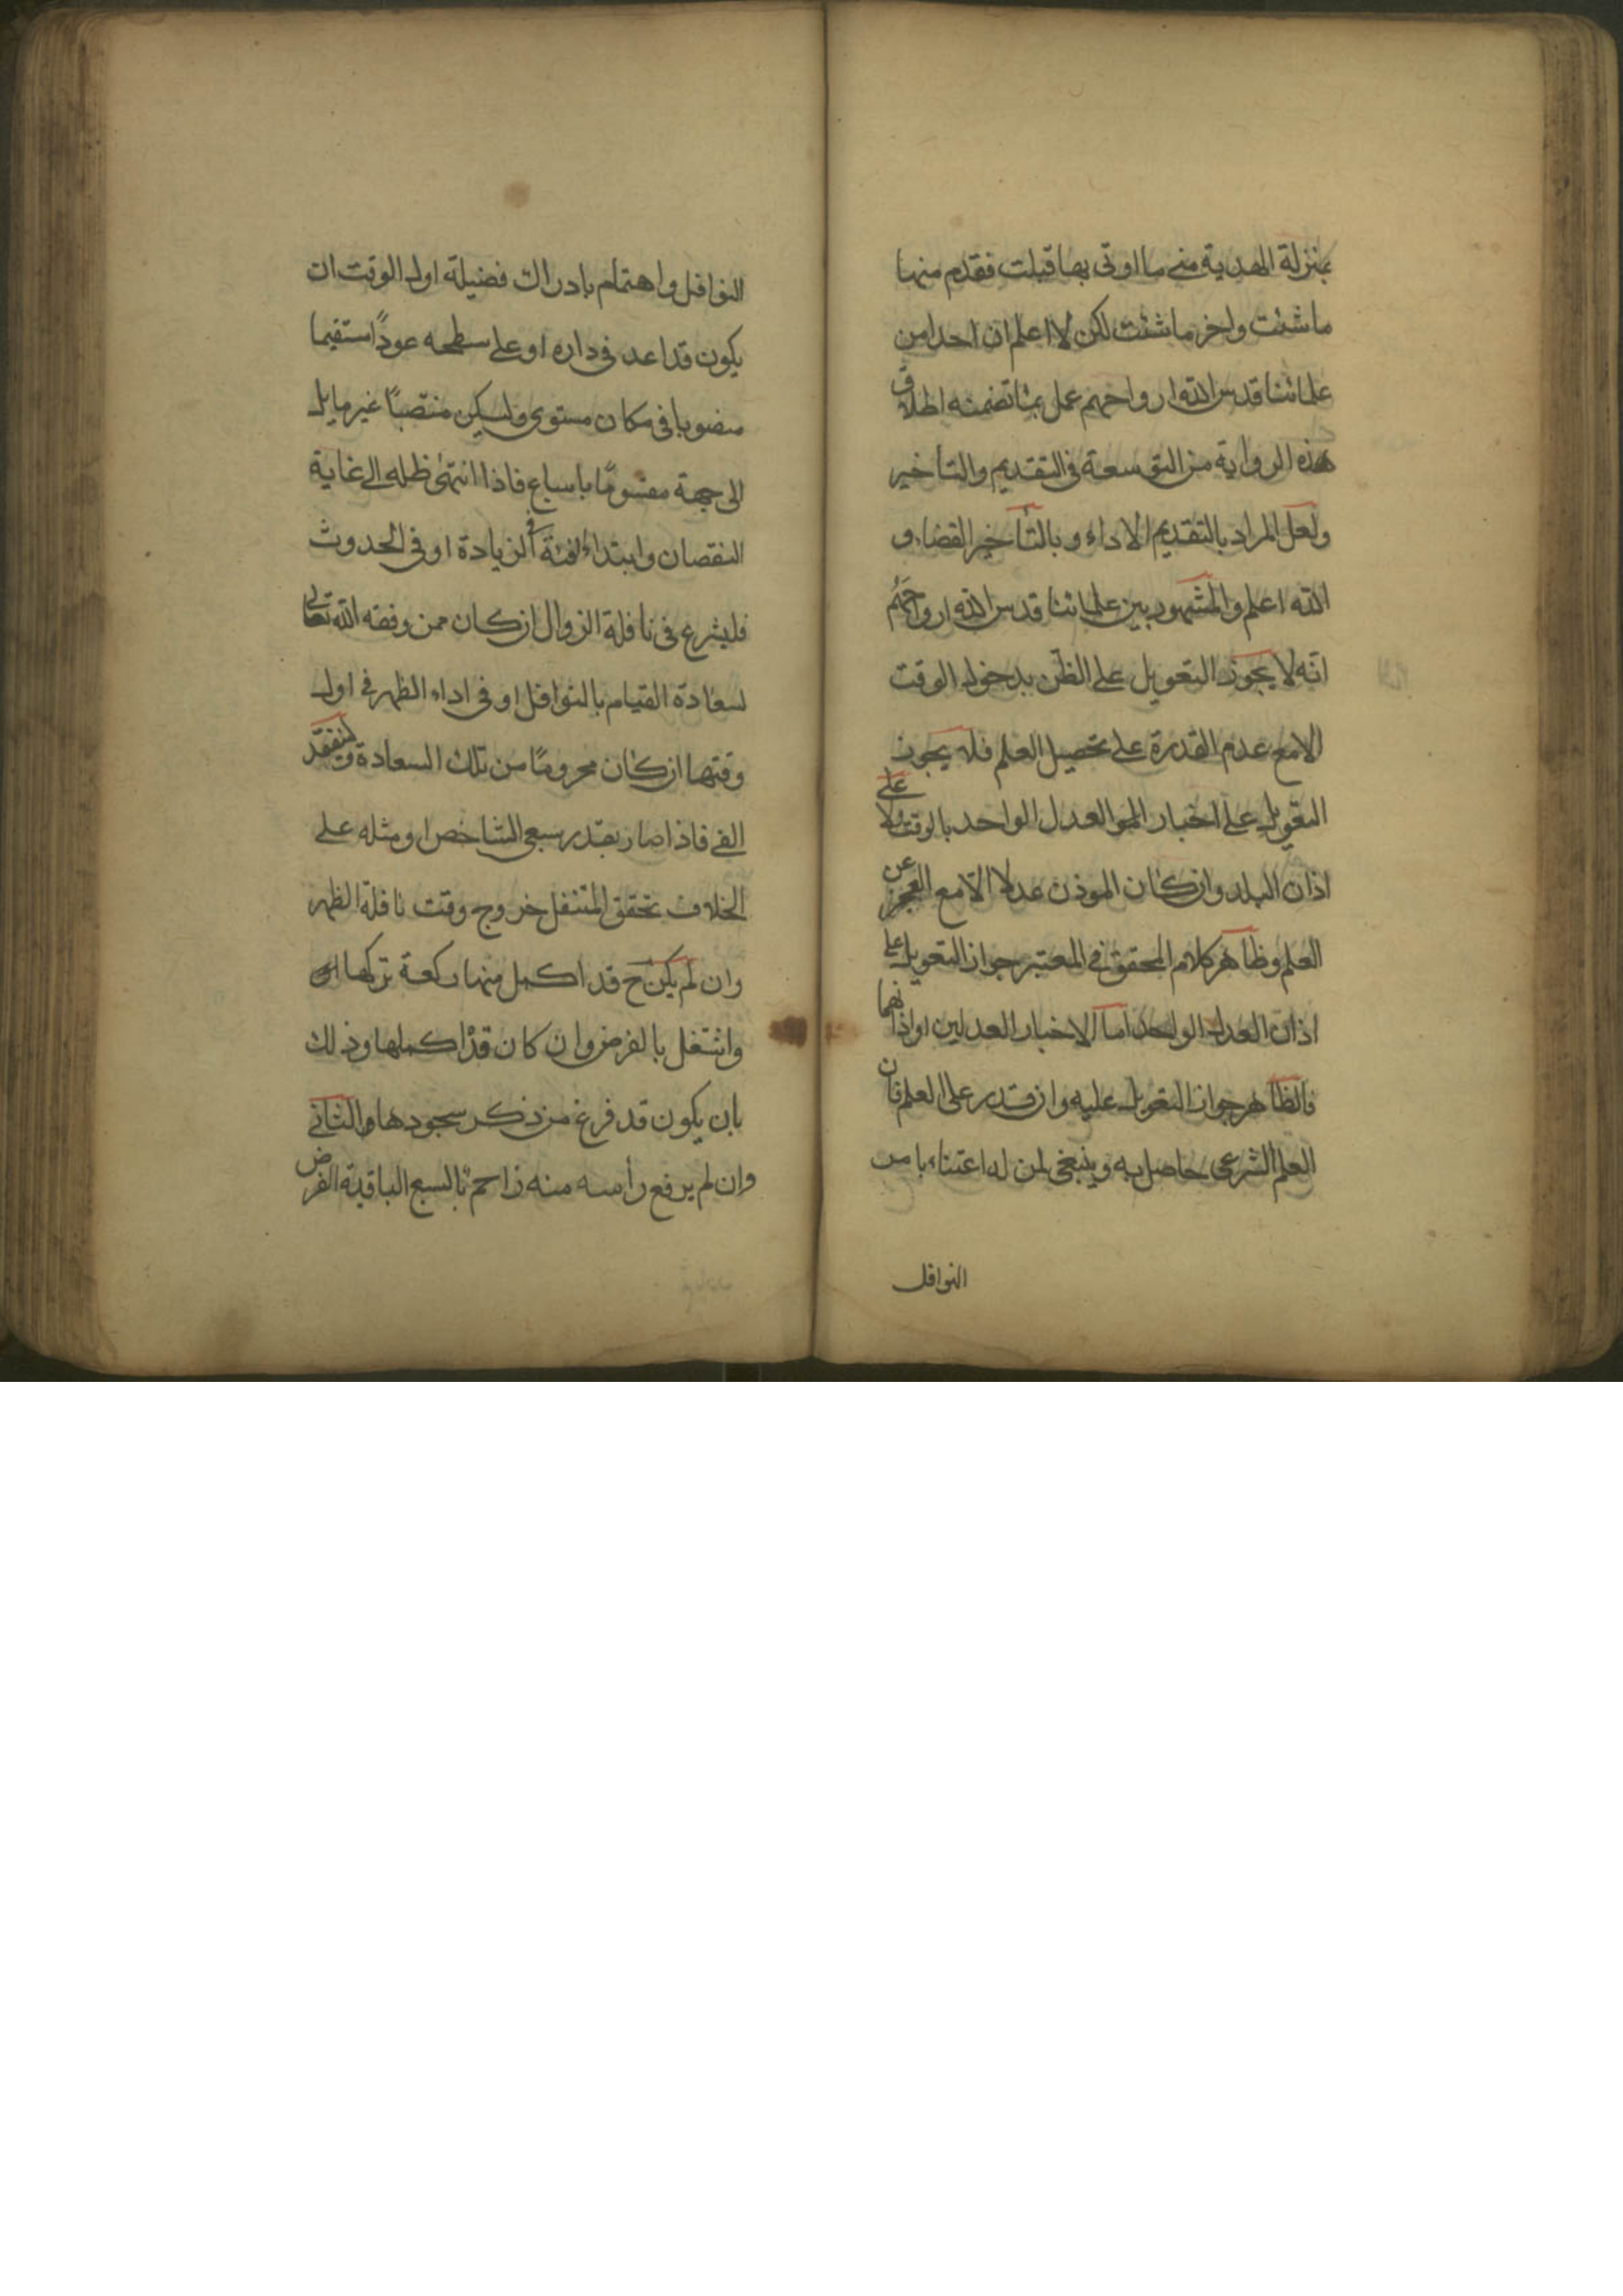 بمنزلة الهدية متى ما اوتى بها قبلت فقدم منها
ما شئت واخر ما شئت لكن لا اعلم ان احدا من
علمائنا قدس الله ارواحهم عمل بما تضمنه اطلاق
هذه الرواية من التوسعة فى التقديم والتأخير
ولعل المراد بالتقديم الاداء وبالتأخير القضاء و
الله اعلم والمشهور بين علمائنا قدس الله ارواحهم
انه لا يجوز التعويل على الظن بدخول الوقت
الا مع عدم القدرة على تحصيل العلم فلا يجوز
التعويل على اخبار العدل الواحد بالوقت ولا على
اذان البلد وان كان الموذن عدلا الا مع العجز عن
العلم وظاهر كلام المحقق فى المعتبر جواز التعويل على
اذان العدل الواحد اما الاخبار العدلين او اذانهما
فالظاهر جواز التعويل عليه وان قدر على العلم فان
العلم الشرعى حاصل به وينبغى لمن له اعتناء بامر
النوافل
النوافل واهتمام بادراك فضيلة اول الوقت ان
يكون قد اعد فى داره او على سطحه عودًا مستقيما
منصوبا فى مكان مستوى وليكن منتصبًا غير مايل
الى جهة مقسومًا باسباع فاذا انتهى ظله الى غاية
النقصان وابتداء فى الزيادة او فى الحدوث
فليشرع فى نافلة الزوال ان كان ممن وفقه الله تعالى
لسعادة القيام بالنوافل او فى اداء الظهر فى اول
وقتها ان كان محرومًا من تلك السعادة وليتفقد
الفى فاذا صار بقدر سبعى الشاخص او مثله على
الخلاف تحقق المتنفل خروج وقت نافلة الظهر
وان لم يكن ح قد اكمل منها ركعة تركها
واشتغل بالفرض وان كان قد اكملها وذلك
بان يكون قد فرغ من ذكر سجودها الثانى
وان لم يرفع رأسه منه زاحم بالسبع الباقية الفرض